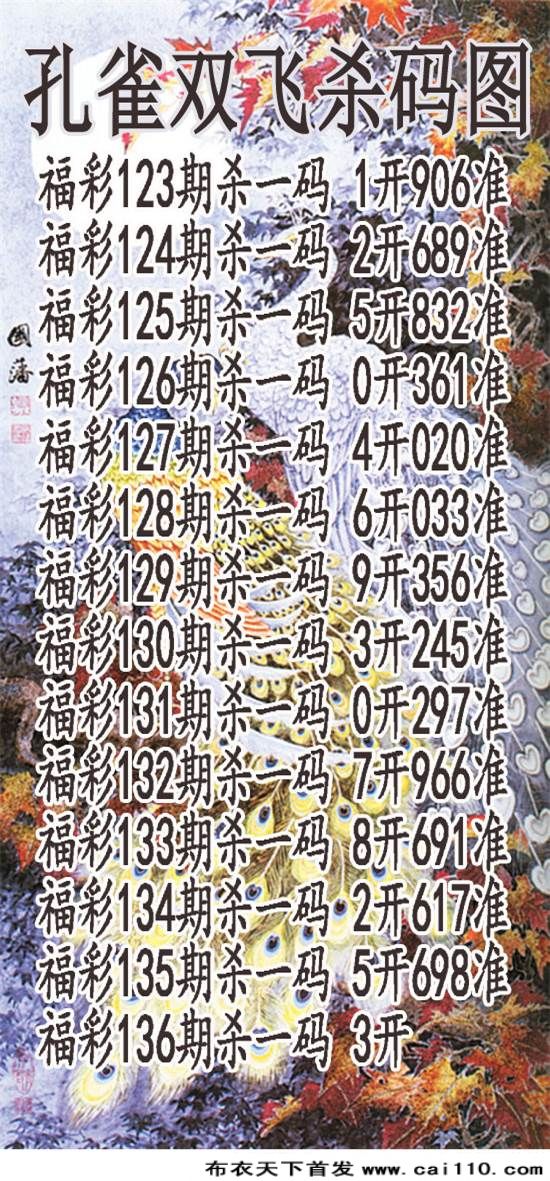 孔雀双飞杀码图
福彩123期杀一码 1开906准
福彩124期杀一码 2开689准
福彩125期杀一码 5开832准
福彩126期杀一码 0开361准
福彩127期杀一码 4开020准
福彩128期杀一码 6开033准
福彩129期杀一码 9开356准
福彩130期杀一码 3开245准
福彩131期杀一码 0开297准
福彩132期杀一码 7开966准
福彩133期杀一码 8开691准
福彩134期杀一码 2开617准
福彩135期杀一码 5开698准
福彩136期杀一码 3开
國藩
布衣天下首发 www.cai110.com